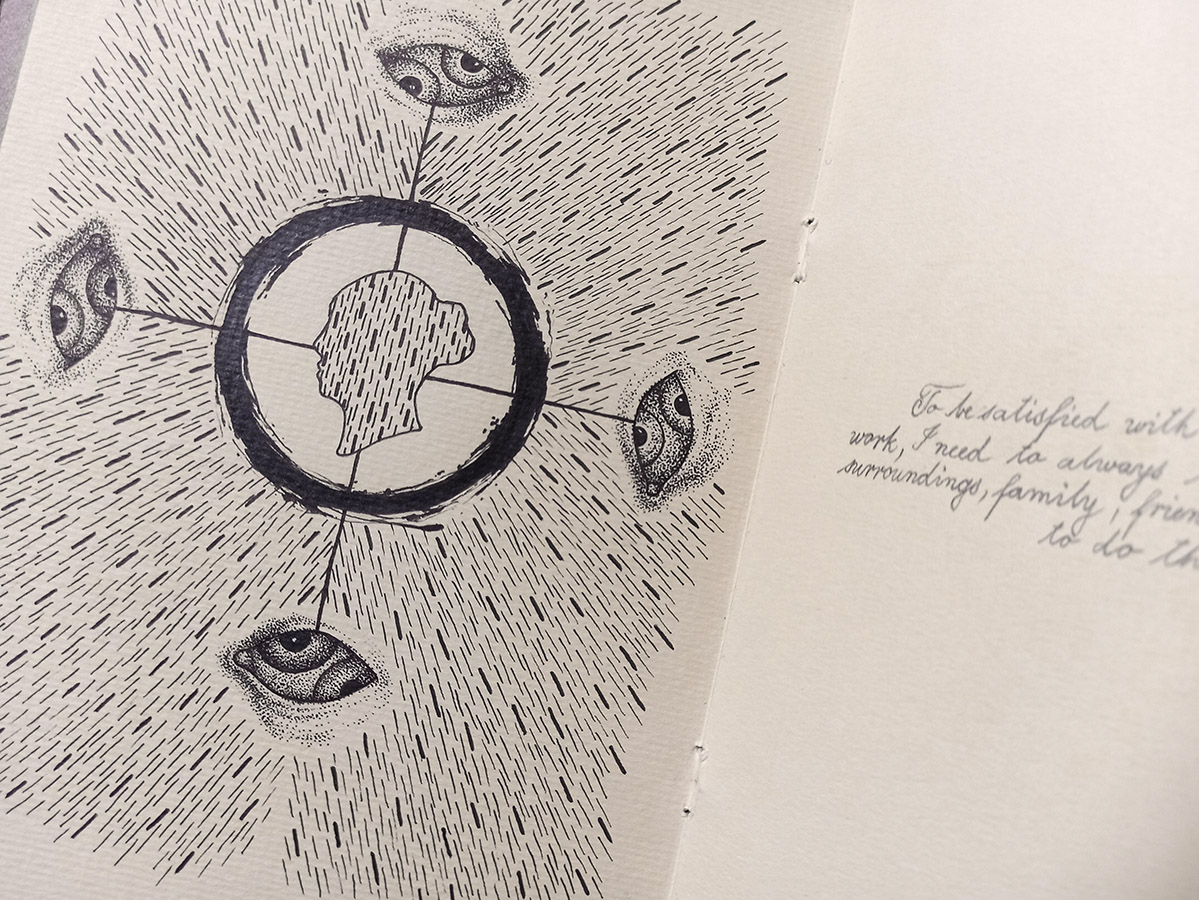 To be satisfied with
work, I need to always
surroundings, family, frien
to do th